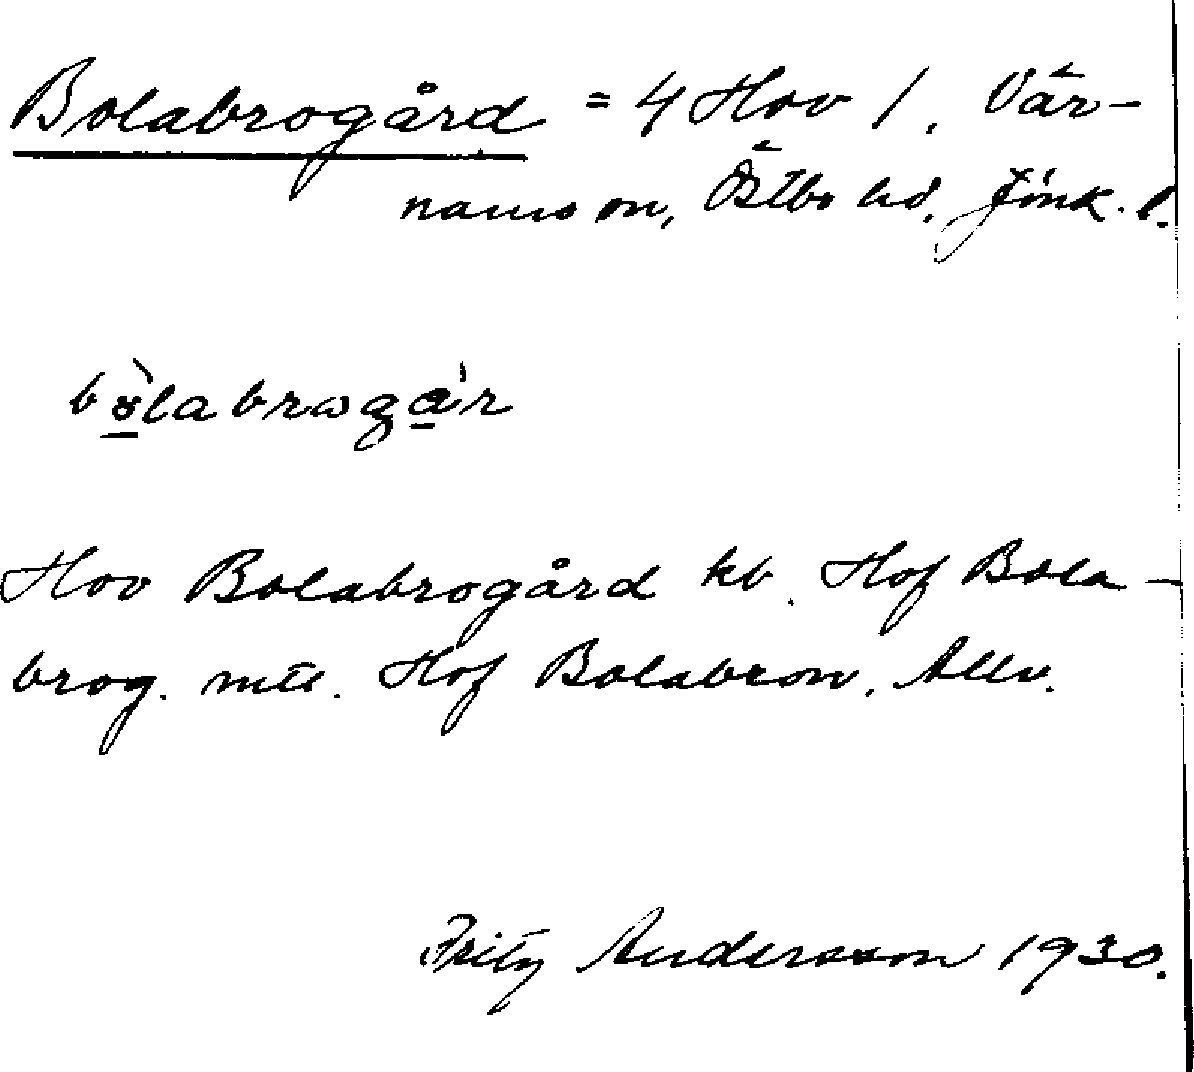 Bolabrogård = 4 Hov 1, Vär-
namo sn, Östbo hd, Jönk. l.
bò̲labrogá̲r
Hov Bolabrogård kb. Hof Bola-
brog. mtl. Hof Bolabron, Allv.
Fritz Andersson 1930.